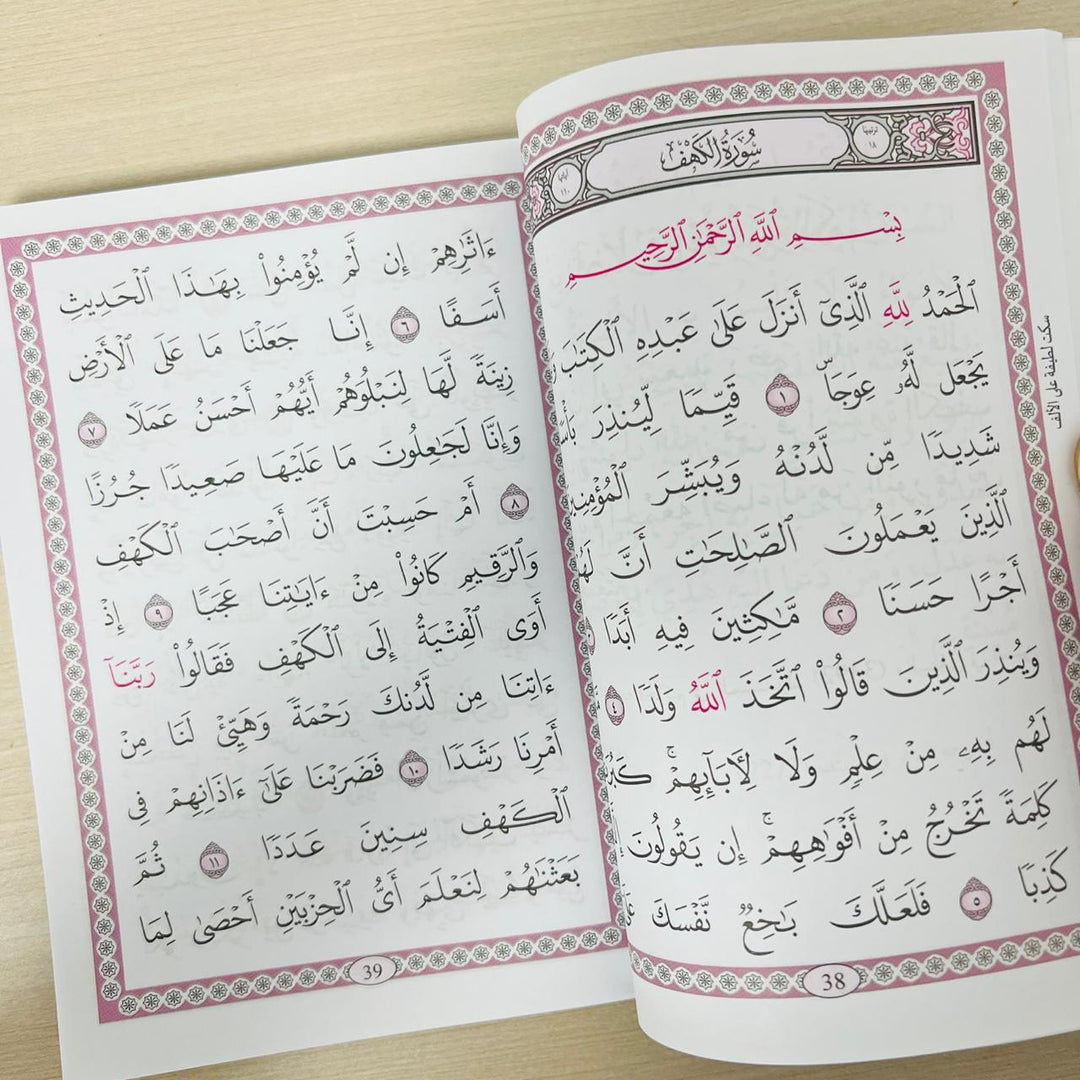 سُورَةُ الكَهْفِ
ترتيبها
١٨
آياتها
١١٠
بِسْمِ ٱللَّهِ ٱلرَّحْمَٰنِ ٱلرَّحِيمِ
ٱلْحَمْدُ لِلَّهِ ٱلَّذِىٓ أَنزَلَ عَلَىٰ عَبْدِهِ ٱلْكِتَٰبَ
يَجْعَل لَّهُۥ عِوَجَاۜ ١ قَيِّمًا لِّيُنذِرَ
شَدِيدًا مِّن لَّدُنْهُ وَيُبَشِّرَ
ٱلَّذِينَ يَعْمَلُونَ ٱلصَّٰلِحَٰتِ أَنَّ
أَجْرًا حَسَنًا ٢ مَّٰكِثِينَ فِيهِ أَبَدًا
وَيُنذِرَ ٱلَّذِينَ قَالُوا۟ ٱتَّخَذَ ٱللَّهُ وَلَدًا ٤
لَهُم بِهِۦ مِنْ عِلْمٍ وَلَا لِـَٔابَآئِهِمْ ۚ
كَلِمَةً تَخْرُجُ مِنْ أَفْوَٰهِهِمْ ۚ إِن يَقُولُونَ
كَذِبًا ٥ فَلَعَلَّكَ بَٰخِعٌ نَّفْسَكَ
سكت لطيفة على الألف
38
ءَاثَٰرِهِمْ إِن لَّمْ يُؤْمِنُوا۟ بِهَٰذَا ٱلْحَدِيثِ
أَسَفًا ٦ إِنَّا جَعَلْنَا مَا عَلَى ٱلْأَرْضِ
زِينَةً لَّهَا لِنَبْلُوَهُمْ أَيُّهُمْ أَحْسَنُ عَمَلًا ٧
وَإِنَّا لَجَٰعِلُونَ مَا عَلَيْهَا صَعِيدًا جُرُزًا
٨ أَمْ حَسِبْتَ أَنَّ أَصْحَٰبَ ٱلْكَهْفِ
وَٱلرَّقِيمِ كَانُوا۟ مِنْ ءَايَٰتِنَا عَجَبًا ٩ إِذْ
أَوَى ٱلْفِتْيَةُ إِلَى ٱلْكَهْفِ فَقَالُوا۟ رَبَّنَآ
ءَاتِنَا مِن لَّدُنكَ رَحْمَةً وَهَيِّئْ لَنَا مِنْ
أَمْرِنَا رَشَدًا ١٠ فَضَرَبْنَا عَلَىٰٓ ءَاذَانِهِمْ فِى
ٱلْكَهْفِ سِنِينَ عَدَدًا ١١ ثُمَّ
بَعَثْنَٰهُمْ لِنَعْلَمَ أَىُّ ٱلْحِزْبَيْنِ أَحْصَىٰ لِمَا
39